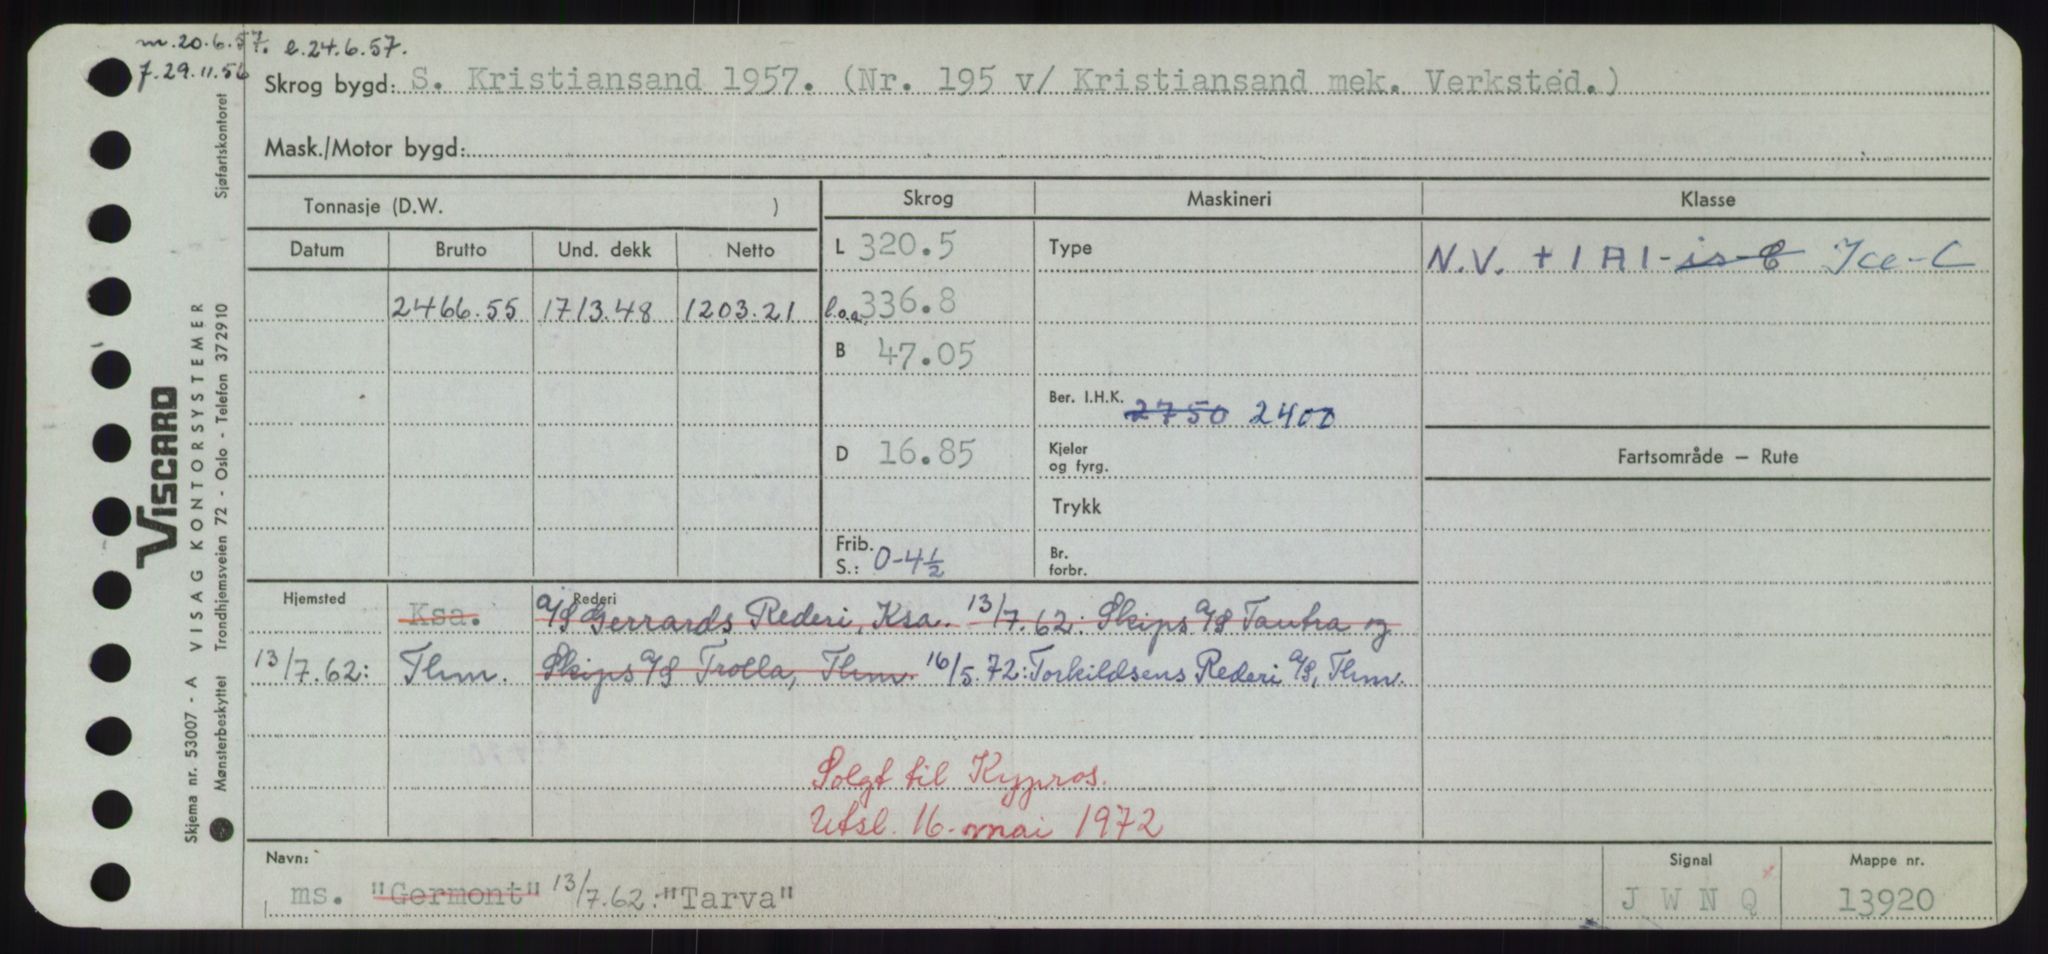 m. 20.6.57. l. 24.6.57.
f. 29.11.56
Skrog bygd: S. Kristiansand 1957. (Nr. 195 v/ Kristiansand mek. Verksted.)
Mask./Motor bygd:
Tonnasje (D.W. )
Skrog
Maskineri
Klasse
Datum Brutto Und. dekk Netto
L 320.5
Type
N.V. + 1A1 - is-C Ice-C
2466.55 1713.48 1203.21
l.o.a. 336.8
B 47.05
Ber. I.H.K. 2750 2400
D 16.85
Kjeler
og fyrg.
Fartsområde — Rute
Trykk
Frib.
S.: 0-4½
Br.
forbr.
Hjemsted
Rederi
Ksa. A/S Gerrards Rederi, Ksa. 13/7.62: Skips A/S Tautra og
13/7.62: Thm. Skips A/S Trolla, Thm. 16/5.72: Torkildsens Rederi A/S, Thm.
Solgt til Kypros.
Utsl. 16. mai 1972
Navn:
ms. "Germont" 13/7.62: "Tarva"
Signal
J W N Q
Mappe nr.
13920
VISCARD
Skjema nr. 53007 - A VISAG KONTORSYSTEMER
Mønsterbeskyttet Trondhjemsveien 72 - Oslo - Telefon 372910
Sjøfartskontoret